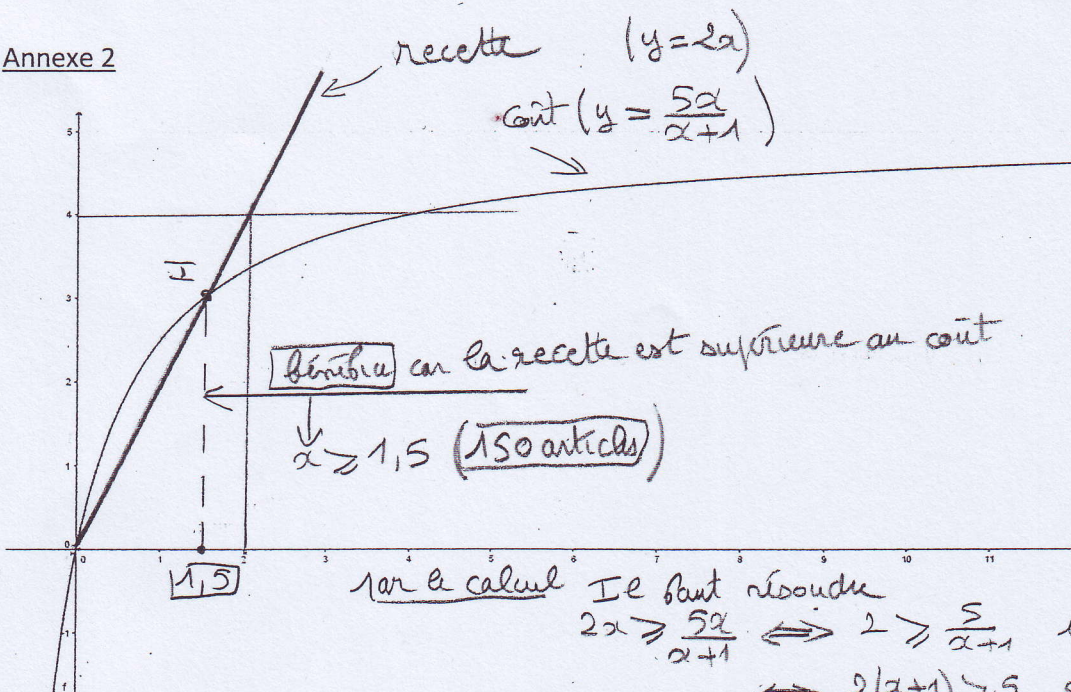 Annexe 2
recette (y=2x)
coût (y = 5x/(x+1))
5
4
H
3
bénéfice car la recette est supérieure au coût
2
x ⩾ 1,5 (150 articles)
1
0
0 1 2 3 4 5 6 7 8 9 10 11
1,5
par le calcul Il faut résoudre
2x ⩾ 5x/(x+1) ⟺ 2 ⩾ 5/(x+1)
-1
⟺ 2(x+1) ⩾ 5